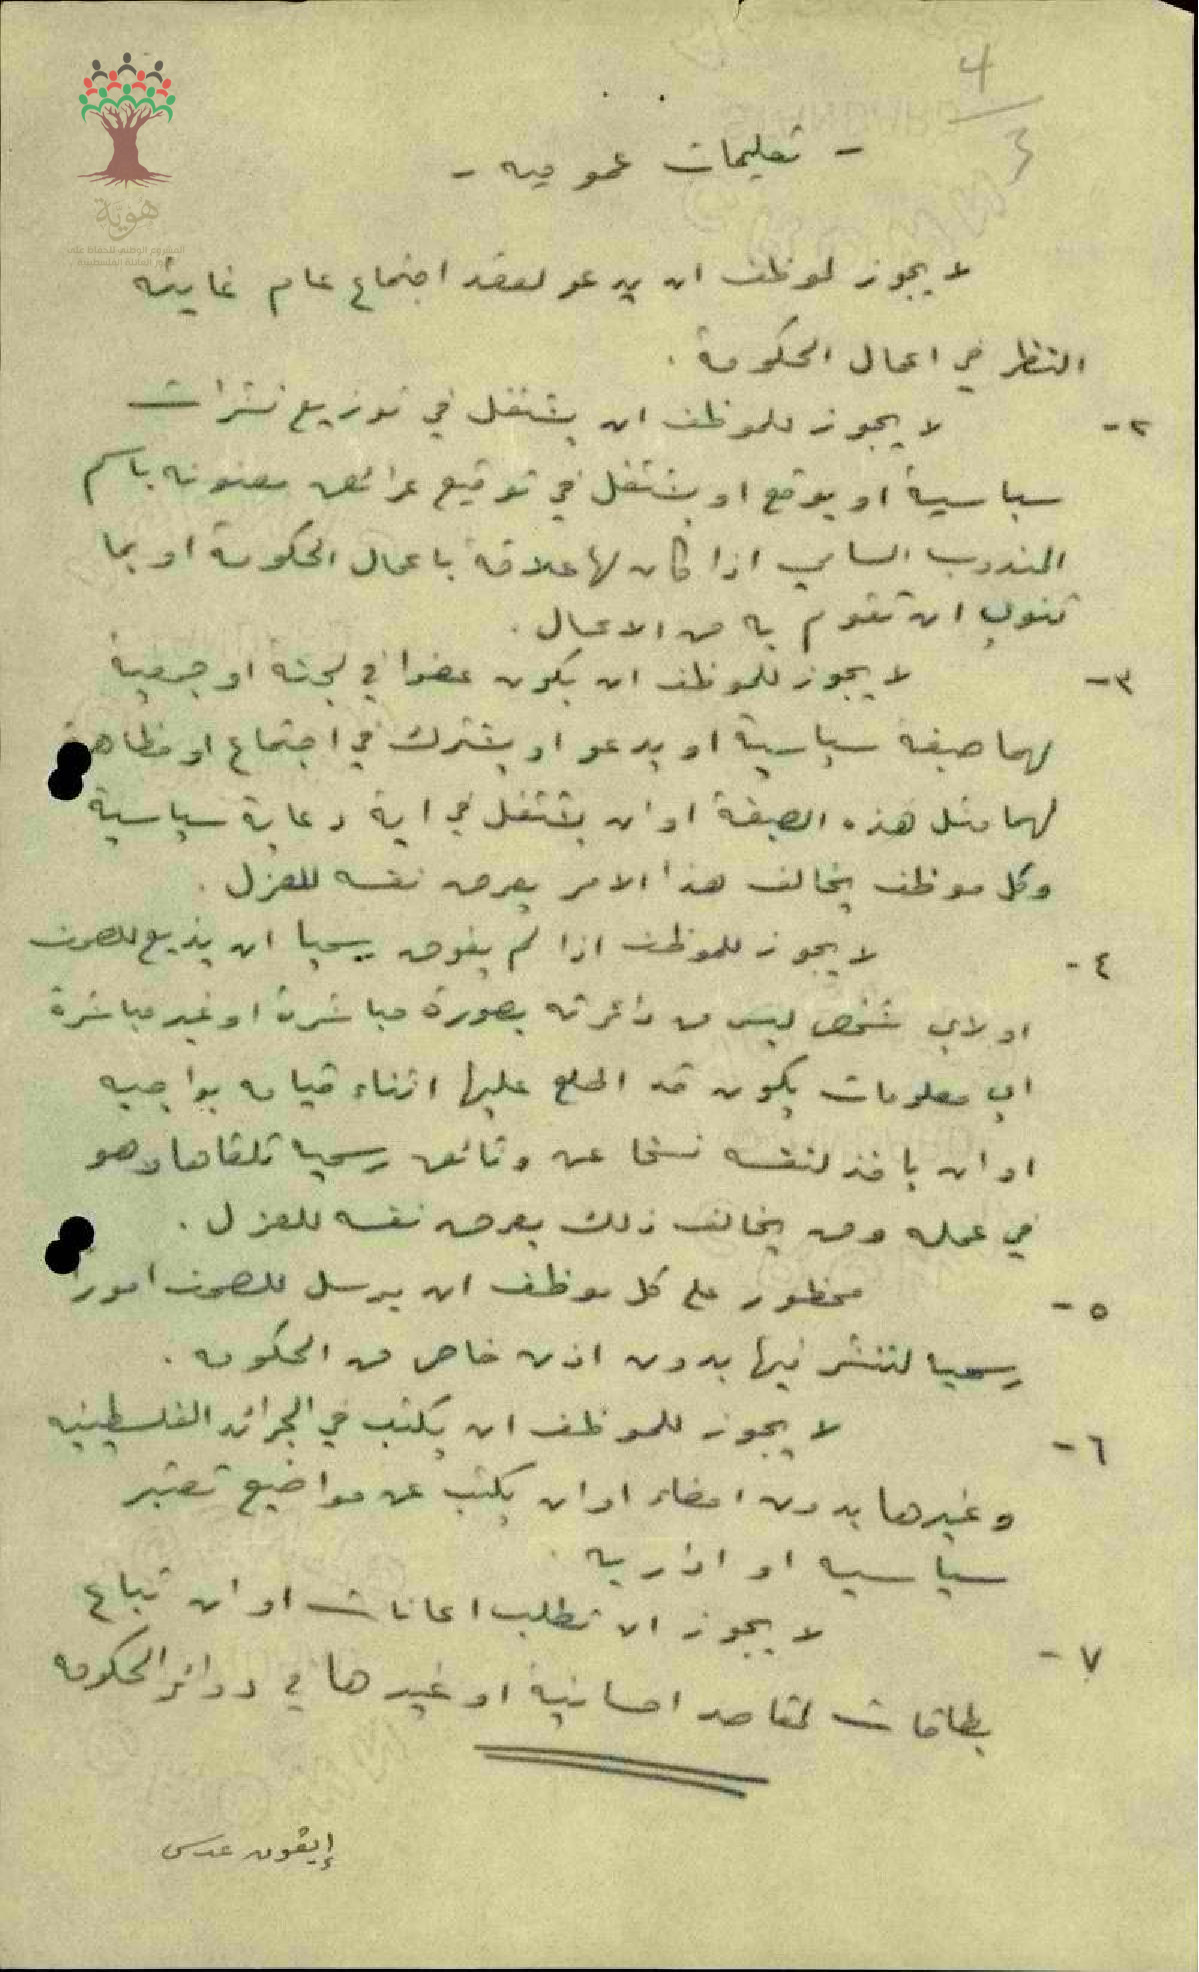 4
3
- تعليمات عموميه -
هوية
المشروع الوطني للحفاظ على
العائلة الفلسطينية
لا يجوز لموظف ان يدعو لعقد اجتماع عام غايته
النظر في اعمال الحكومة .
٢- لا يجوز للموظف ان يشتغل في توزيع نشرات
سياسية او يوقع او يشتغل في توقيع عرائض معنونه باسم
المندوب السامي اذا كان لها علاقة باعمال الحكومة او بما
تنوي ان تقوم به من الاعمال .
٣- لا يجوز للموظف ان يكون عضوا في لجنة او جمعية
لهما صبغة سياسية او يدعو او يشترك في اجتماع او مظاهرة
لهما مثل هذه الصبغة او ان يشتغل في اية دعاية سياسية
وكل موظف يخالف هذا الامر يعرض نفسه للعزل .
٤- لا يجوز للموظف اذا لم يفوض رسميا ان يذيع للصحف
او لاي شخص ليس من دائرته بصورة مباشرة او غير مباشرة
اي معلومات يكون قد اطلع عليها اثناء قيامه بواجبه
او ان ياخذ لنفسه نسخا عن وثائق رسميا تلقاها وهو
في عمله ومن يخالف ذلك يعرض نفسه للعزل .
٥- محظور على كل موظف ان يرسل للصحف امورا
رسميا لتنشر فيها بدون اذن خاص من الحكومه .
٦- لا يجوز للموظف ان يكتب في الجرائد الفلسطينيه
وغيرها بدون امضاء او ان يكتب عن مواضيع تعتبر
سياسيه او اداريه .
٧- لا يجوز ان تطلب اعانات او ان تباع
بطاقات لمقاصد احسانية او غيرها في دوائر الحكومه
إيقون عدس